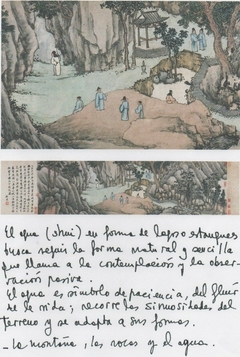 El agua (shui) en forma de lagos o estanques
busca seguir la forma natural y sencilla
que llama a la contemplación y la obser-
vación pasiva.
El agua es símbolo de paciencia, del fluir
de la vida; recorre las sinuosidades del
terreno y se adapta a sus formas.
- La montaña, las rocas y el agua.